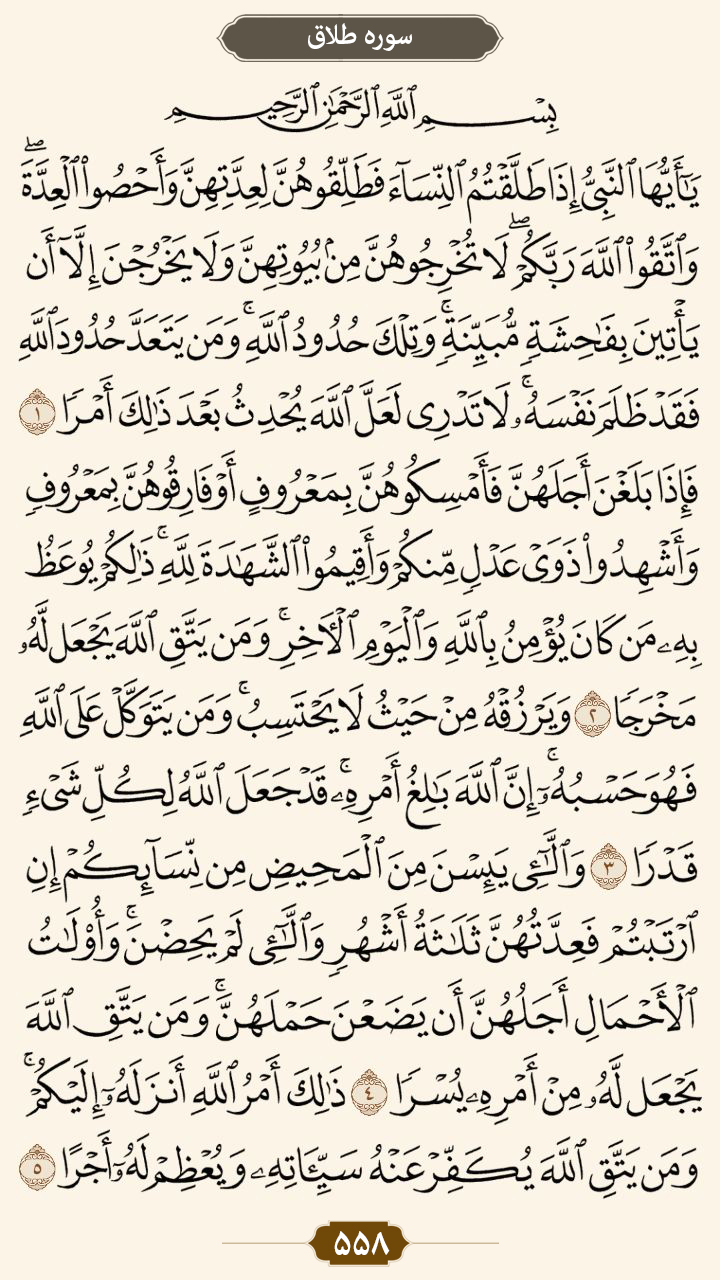 سوره طلاق
بِسۡمِ ٱللَّهِ ٱلرَّحۡمَٰنِ ٱلرَّحِيمِ
يَٰٓأَيُّهَا ٱلنَّبِيُّ إِذَا طَلَّقۡتُمُ ٱلنِّسَآءَ فَطَلِّقُوهُنَّ لِعِدَّتِهِنَّ وَأَحۡصُواْ ٱلۡعِدَّةَۖ
وَٱتَّقُواْ ٱللَّهَ رَبَّكُمۡۖ لَا تُخۡرِجُوهُنَّ مِنۢ بُيُوتِهِنَّ وَلَا يَخۡرُجۡنَ إِلَّآ أَن
يَأۡتِينَ بِفَٰحِشَةٖ مُّبَيِّنَةٖۚ وَتِلۡكَ حُدُودُ ٱللَّهِۚ وَمَن يَتَعَدَّ حُدُودَ ٱللَّهِ
فَقَدۡ ظَلَمَ نَفۡسَهُۥۚ لَا تَدۡرِي لَعَلَّ ٱللَّهَ يُحۡدِثُ بَعۡدَ ذَٰلِكَ أَمۡرٗا ١
فَإِذَا بَلَغۡنَ أَجَلَهُنَّ فَأَمۡسِكُوهُنَّ بِمَعۡرُوفٍ أَوۡ فَارِقُوهُنَّ بِمَعۡرُوفٖ
وَأَشۡهِدُواْ ذَوَيۡ عَدۡلٖ مِّنكُمۡ وَأَقِيمُواْ ٱلشَّهَٰدَةَ لِلَّهِۚ ذَٰلِكُمۡ يُوعَظُ
بِهِۦ مَن كَانَ يُؤۡمِنُ بِٱللَّهِ وَٱلۡيَوۡمِ ٱلۡأٓخِرِۚ وَمَن يَتَّقِ ٱللَّهَ يَجۡعَل لَّهُۥ
مَخۡرَجٗا ٢ وَيَرۡزُقۡهُ مِنۡ حَيۡثُ لَا يَحۡتَسِبُۚ وَمَن يَتَوَكَّلۡ عَلَى ٱللَّهِ
فَهُوَ حَسۡبُهُۥٓۚ إِنَّ ٱللَّهَ بَٰلِغُ أَمۡرِهِۦۚ قَدۡ جَعَلَ ٱللَّهُ لِكُلِّ شَيۡءٖ
قَدۡرٗا ٣ وَٱلَّٰٓـِٔي يَئِسۡنَ مِنَ ٱلۡمَحِيضِ مِن نِّسَآئِكُمۡ إِنِ
ٱرۡتَبۡتُمۡ فَعِدَّتُهُنَّ ثَلَٰثَةُ أَشۡهُرٖ وَٱلَّٰٓـِٔي لَمۡ يَحِضۡنَۚ وَأُوْلَٰتُ
ٱلۡأَحۡمَالِ أَجَلُهُنَّ أَن يَضَعۡنَ حَمۡلَهُنَّۚ وَمَن يَتَّقِ ٱللَّهَ
يَجۡعَل لَّهُۥ مِنۡ أَمۡرِهِۦ يُسۡرٗا ٤ ذَٰلِكَ أَمۡرُ ٱللَّهِ أَنزَلَهُۥٓ إِلَيۡكُمۡۚ
وَمَن يَتَّقِ ٱللَّهَ يُكَفِّرۡ عَنۡهُ سَيِّـَٔاتِهِۦ وَيُعۡظِمۡ لَهُۥٓ أَجۡرًا ٥
۵۵۸